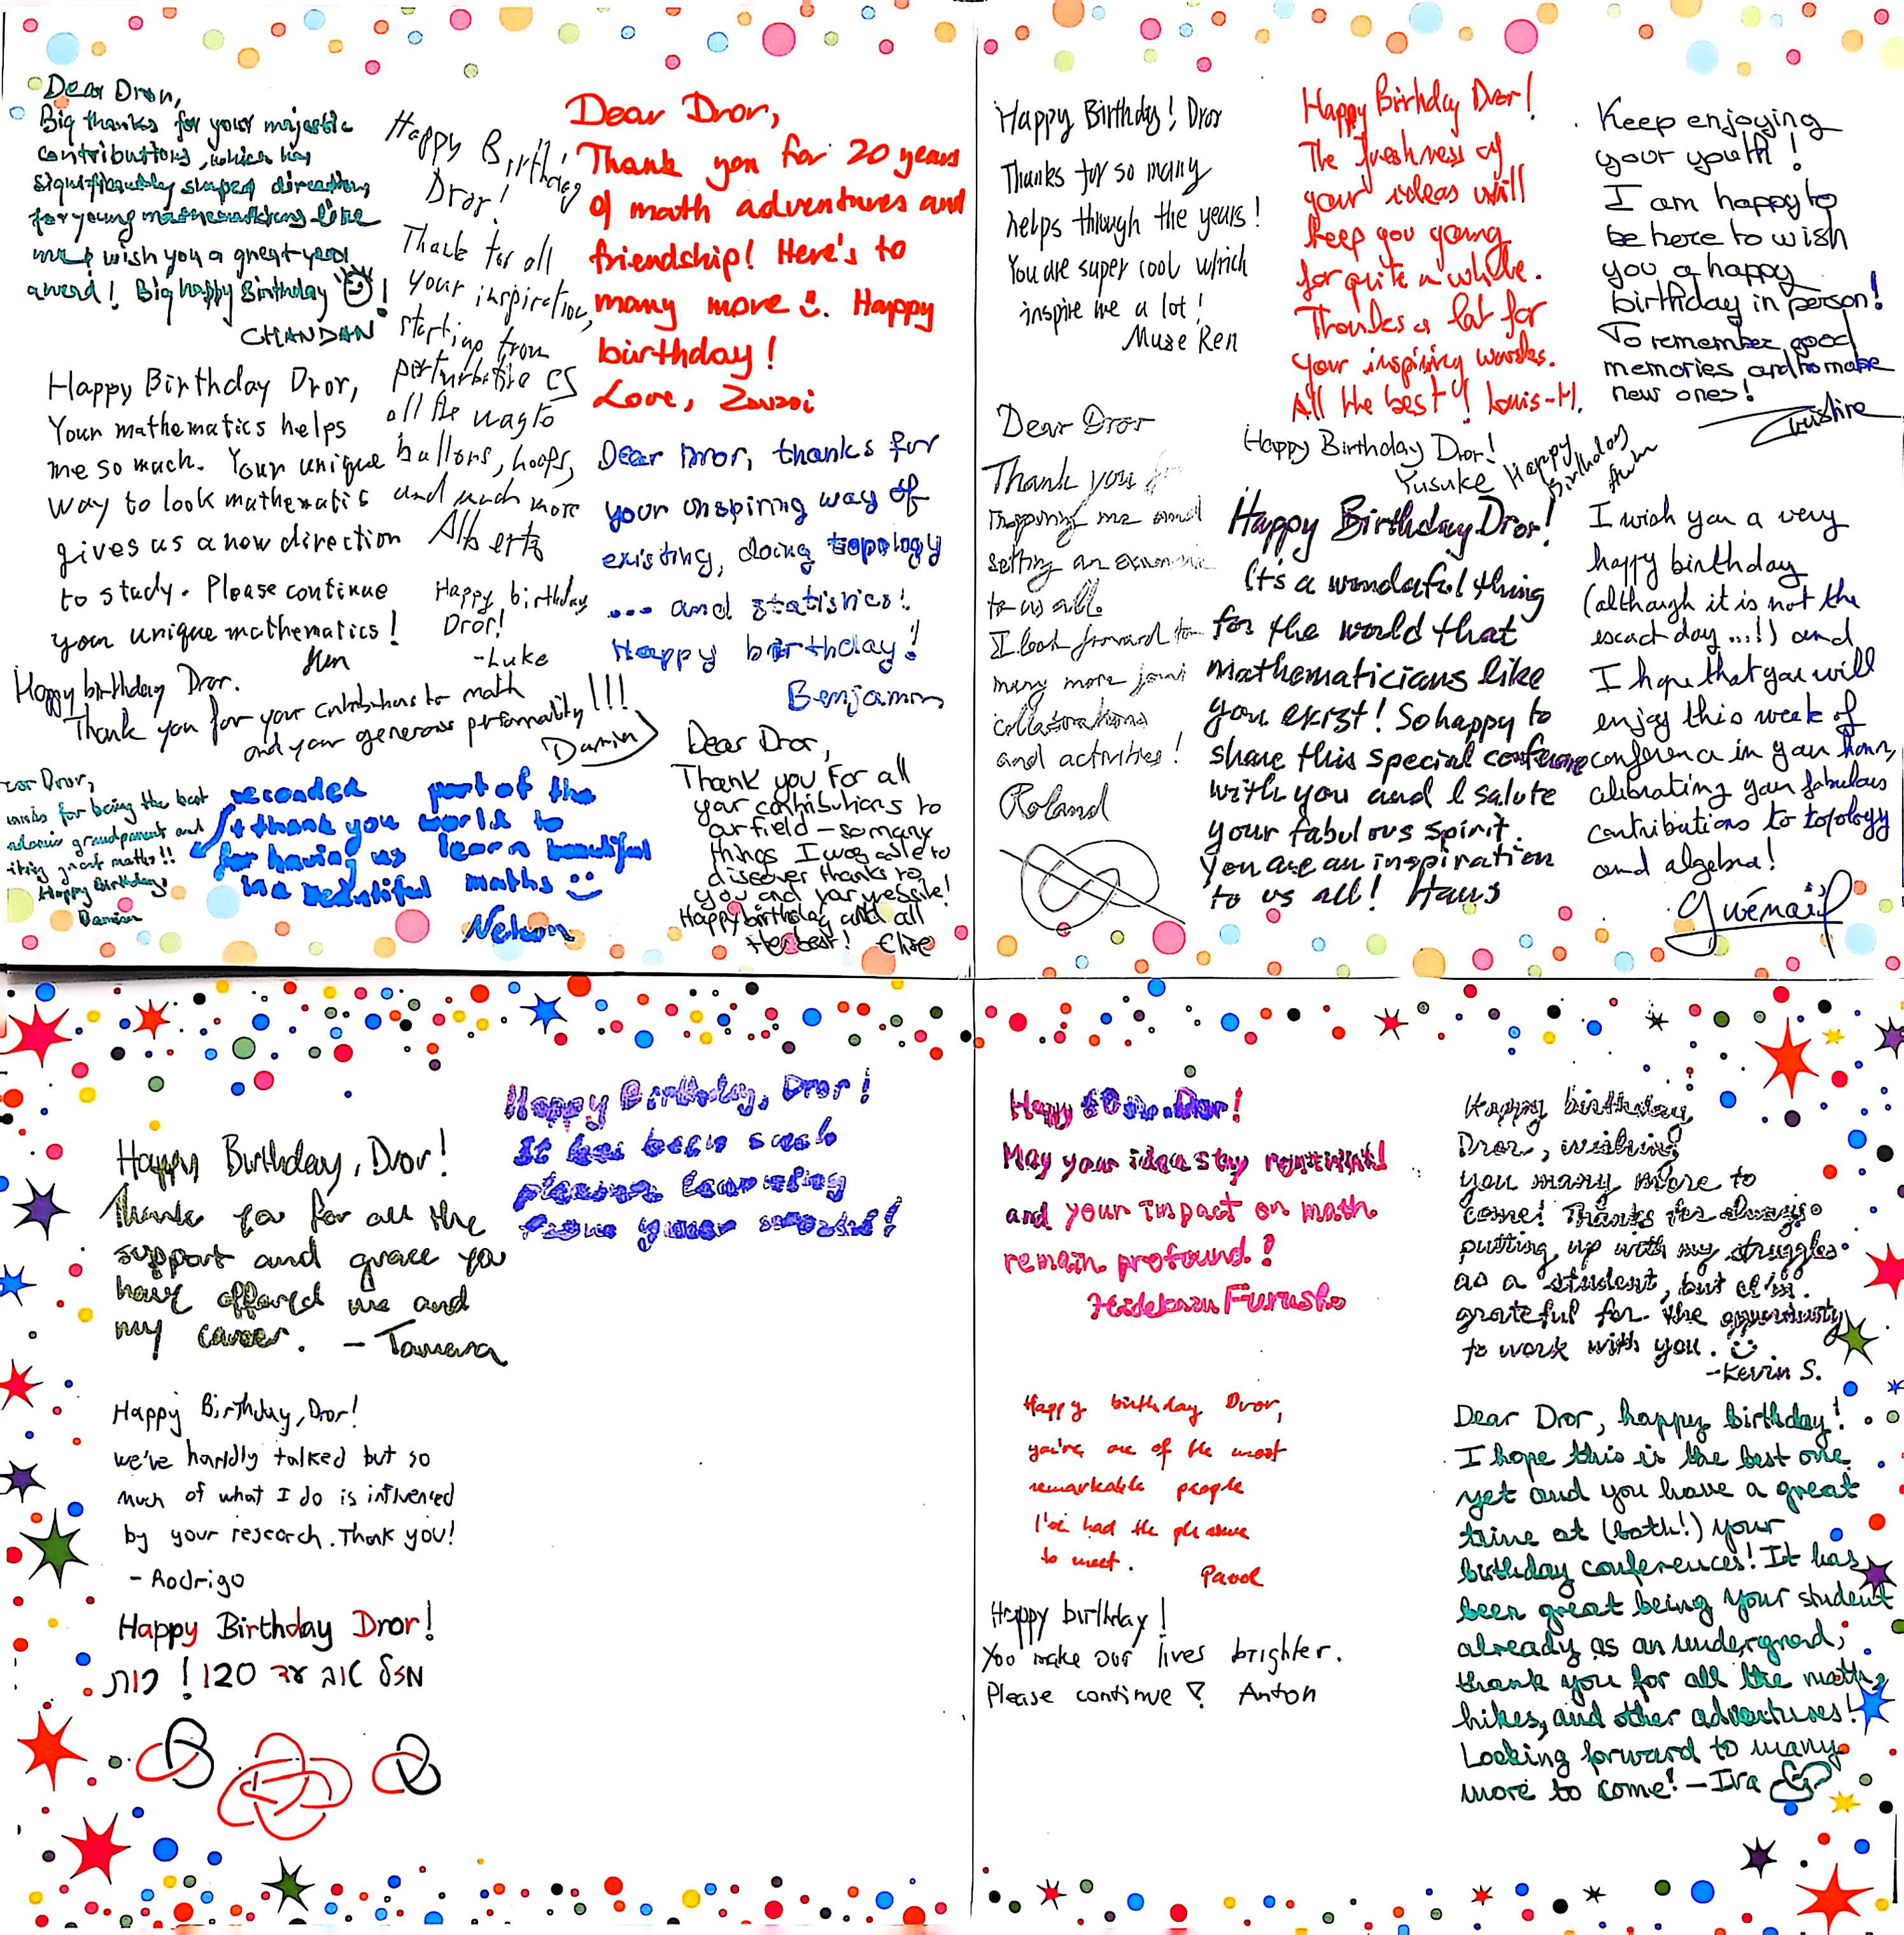 Dear Dror,
Big thanks for your majestic
contributions, which has
significantly shaped directions
for young mathematicians like
me & wish you a great year
award! Big happy Birthday !
CHANDAN
Happy Birthday
Dror!
Thank for all
your inspiration,
starting from
perturbative CS
all the way to
ballons, hoops,
and much more
Alberto
Dear Dror,
Thank you for 20 years
of math adventures and
friendship! Here's to
many more :). Happy
birthday!
Love, Zsuzsi
Happy Birthday Dror,
Your mathematics helps
me so much. Your unique
way to look mathematics
gives us a new direction
to study. Please continue
your unique mathematics!
Happy birthday
Dror!
-Luke
Dear Dror, thanks for
your inspiring way of
existing, doing topology
... and statistics!
Happy birthday!
Benjamin
Happy birthday Dror.
Thank you for your contributions to math
and your generous personality!!!
Damin
Dror,
for being the best
grandparent and
great maths!!
Happy Birthday!
Damian
reconded part of the
+ thank you world to
for having us learn beautiful
in a beautiful maths :)
Nelson
Dear Dror,
Thank you for all
your contributions to
our field - so many
things I was able to
discover thanks to
you and your website!
Happy birthday and all
the best! Elise
Happy Birthday! Dror
Thanks for so many
helps through the years!
You are super cool which
inspire me a lot!
Muze Ren
Happy Birthday Dror!
The freshness of
your ideas will
keep you young
for quite a while.
Thanks a lot for
your inspiring works.
All the best! Louis-H.
Keep enjoying
your youth!
I am happy to
be here to wish
you a happy
birthday in person!
To remember good
memories and to make
new ones!
Christine
Dear Dror
Thank you for
inspiring me and
setting an example
to us all.
I look forward to
many more joint
collaborations
and activities!
Roland
Happy Birthday Dror!
Yusuke
Happy
Birthday
Happy Birthday Dror!
It's a wonderful thing
for the world that
mathematicians like
you exist! So happy to
share this special conference
with you and I salute
your fabulous spirit.
You are an inspiration
to us all! Hans
I wish you a very
happy birthday
(although it is not the
exact day ...!) and
I hope that you will
enjoy this week of
conference in your honor,
celebrating your fabulous
contributions to topology
and algebra!
Gwénaël
Happy Birthday, Dror!
Thank you for all the
support and grace you
have offered me and
my career. - Tamara
Happy Birthday, Dror!
It has been such
pleasure learning
from your works!
Happy Birthday, Dror!
we've hardly talked but so
much of what I do is influenced
by your research. Thank you!
- Rodrigo
Happy Birthday Dror!
מזל טוב עד 120! רות
Happy 60th, Dror!
May your ideas stay
and your impact on math
remain profound!
Hidekazu Furusho
Happy birthday Dror,
you're one of the most
remarkable people
I've had the pleasure
to meet.
Pavol
Happy birthday!
You make our lives brighter.
Please continue! Anton
Happy birthday,
Dror, wishing
you many more to
come! Thanks for always
putting up with my struggles
as a student, but I'm
grateful for the opportunity
to work with you. :)
-Kevin S.
Dear Dror, happy birthday!
I hope this is the best one
yet and you have a great
time at (both!) your
birthday conferences! It has
been great being your student
already as an undergrad;
thank you for all the math,
hikes, and other adventures!
Looking forward to many
more to come! -Iva